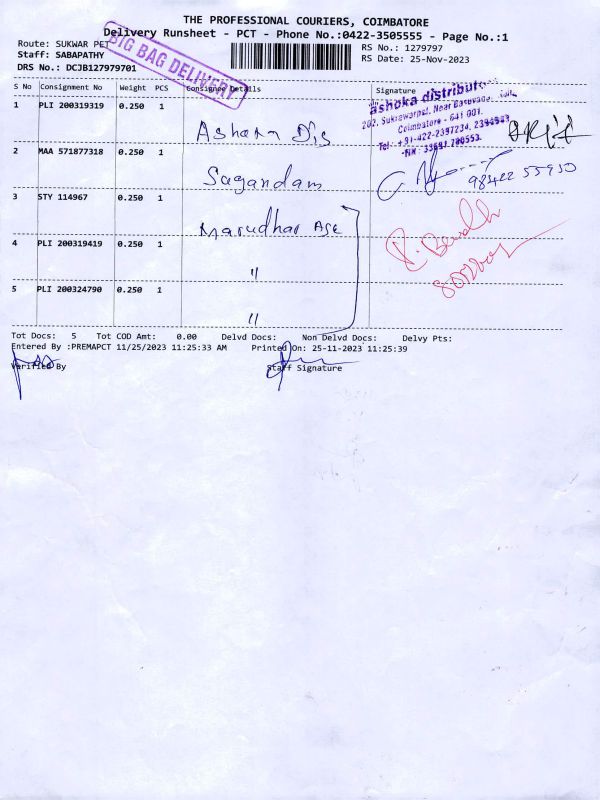 THE PROFESSIONAL COURIERS, COIMBATORE
Delivery Runsheet - PCT - Phone No.:0422-3505555 - Page No.:1
Route: SUKWAR PET
Staff: SABAPATHY
DRS No.: DCJB127979701
RS No.: 1279797
RS Date: 25-Nov-2023
BIG BAG DELIVERY
S No Consignment No Weight PCS Consignee Details Signature
1 PLI 200319319 0.250 1
Ashoka Dis
ashoka distribut
Coimbatore - 641 001.
2 MAA 571877318 0.250 1
Sagandam
98422 55950
3 STY 114967 0.250 1
Marudhar Age
4 PLI 200319419 0.250 1
"
5 PLI 200324790 0.250 1
"
Tot Docs: 5 Tot COD Amt: 0.00 Delvd Docs: Non Delvd Docs: Delvy Pts:
Entered By :PREMAPCT 11/25/2023 11:25:33 AM Printed On: 25-11-2023 11:25:39
Verified By Staff Signature